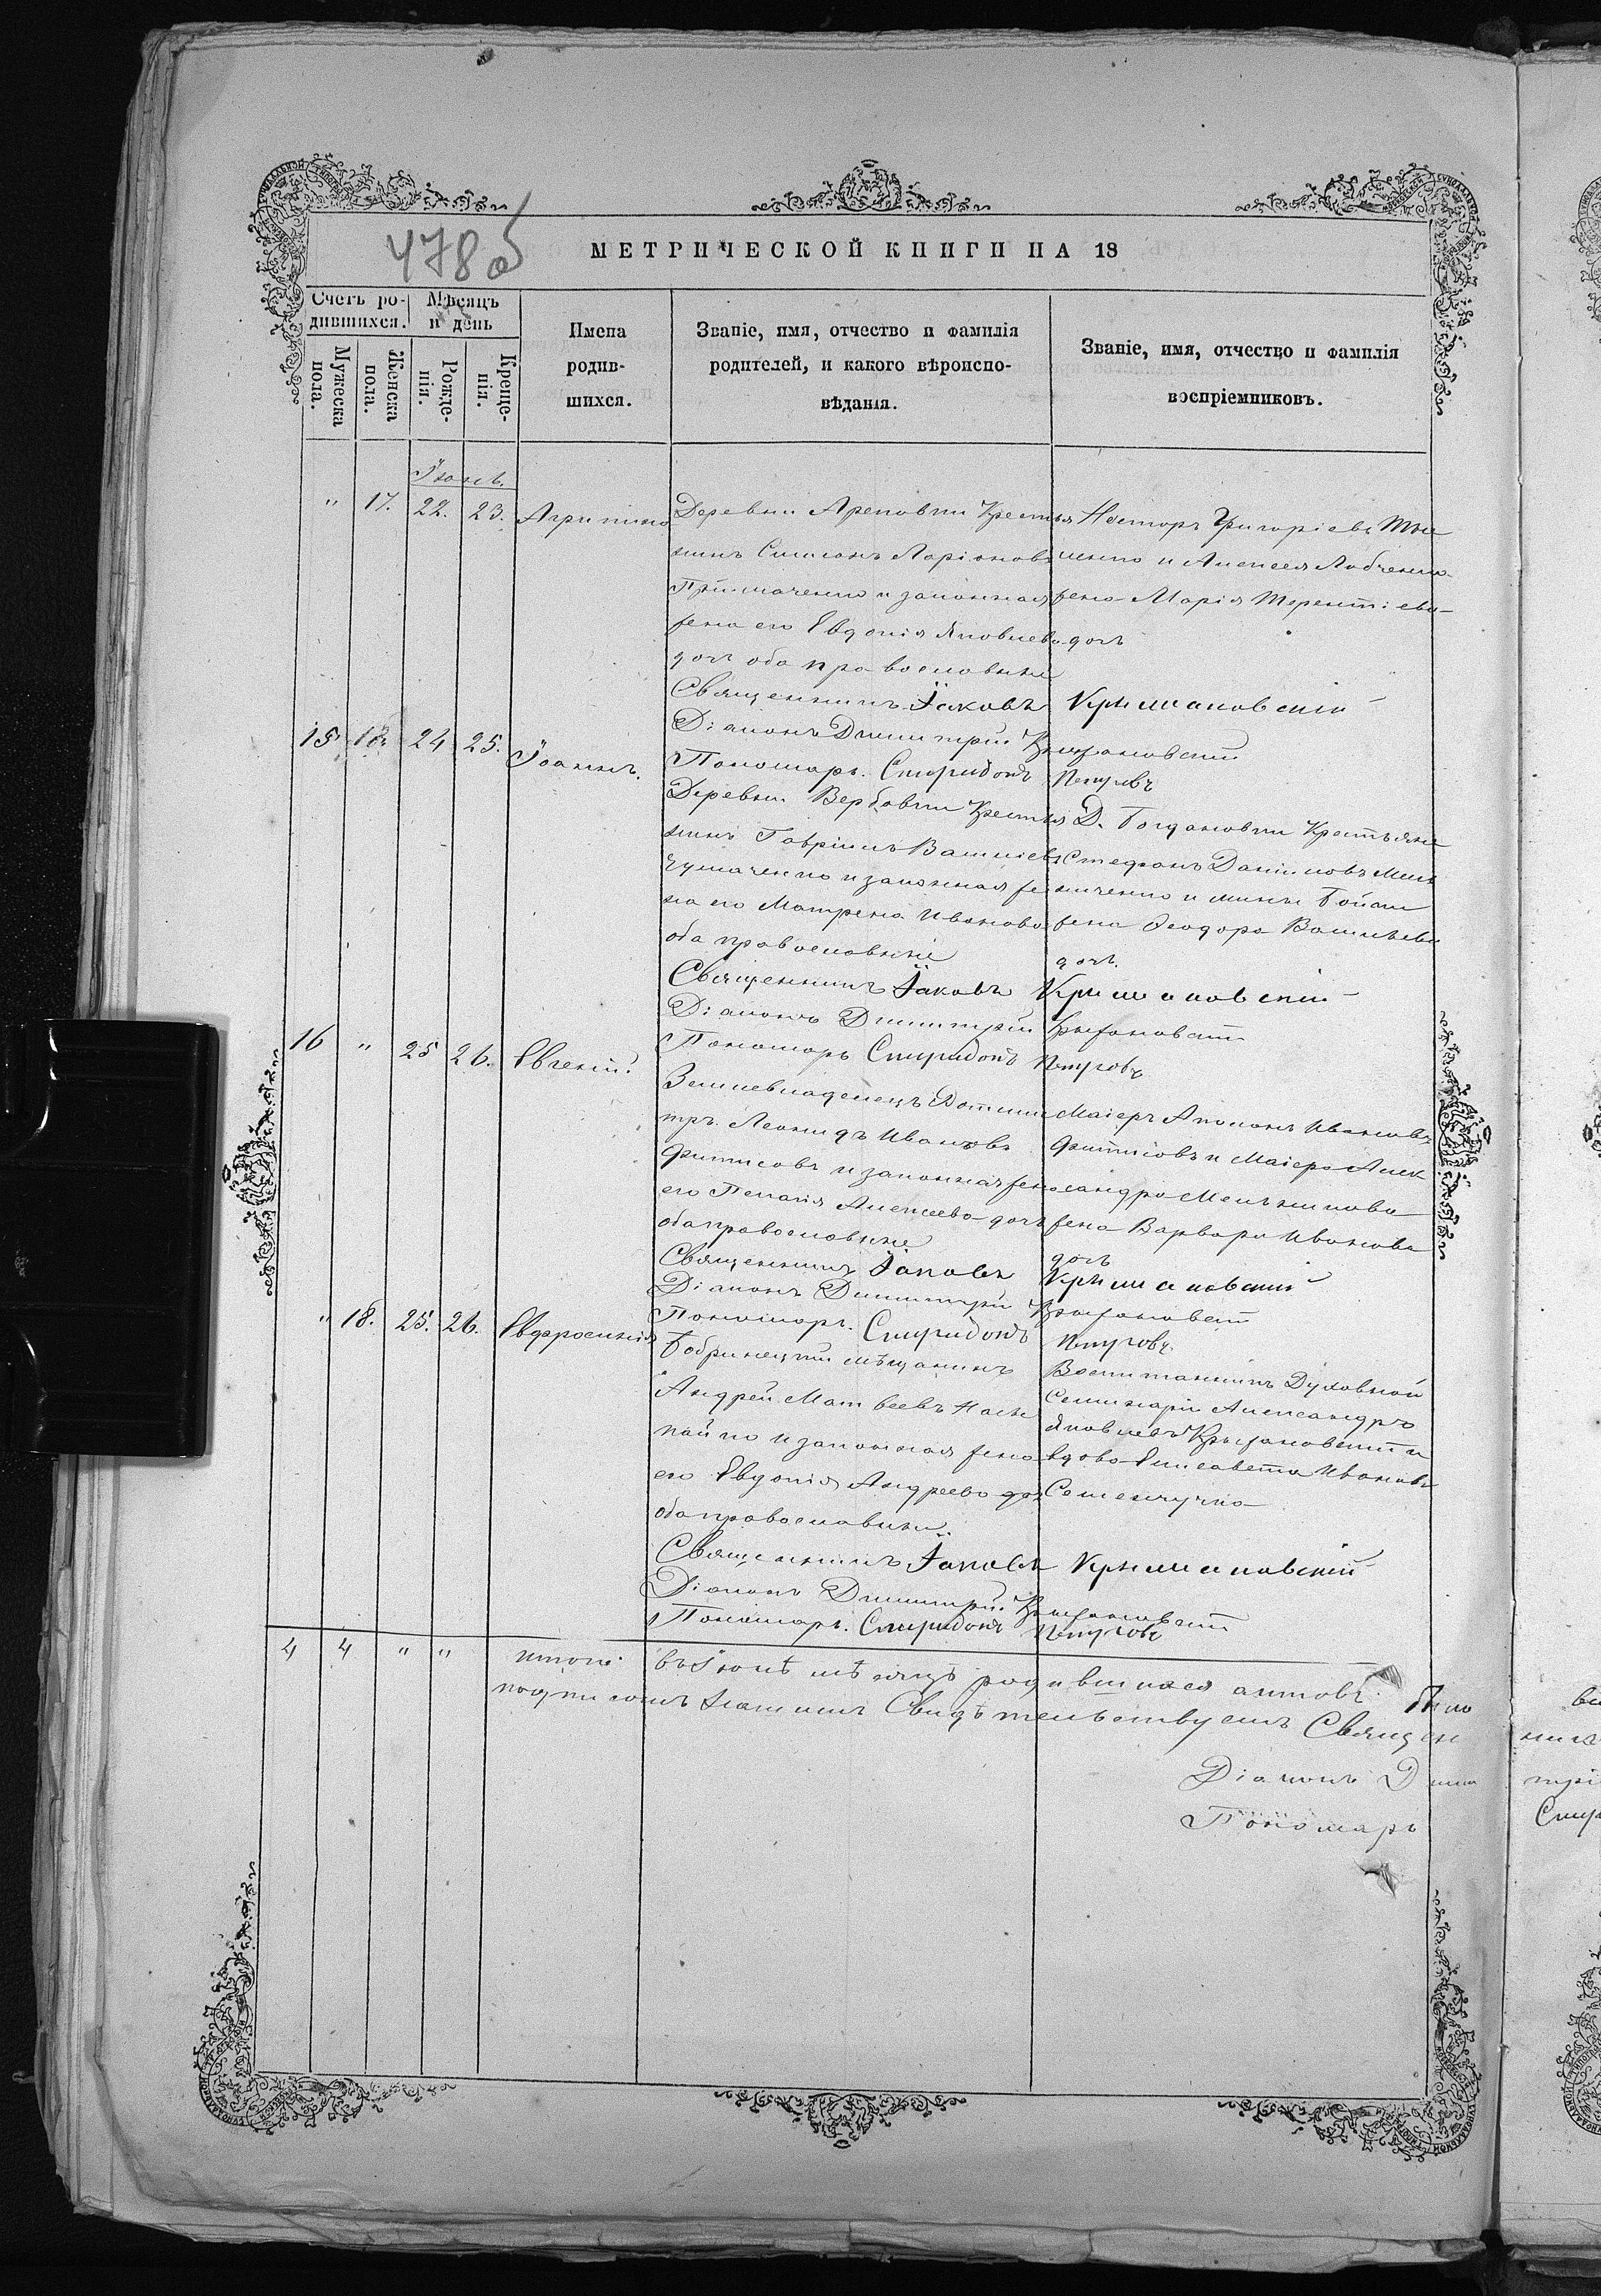 478 об
МЕТРИЧЕСКОЙ КНИГИ НА 18
Счетъ родившихся.
Мужеска пола.
Женска пола.
Мѣсяцъ и день
Рожденія.
Крещенія.
Имена родившихся.
Званіе, имя, отчество и фамилія родителей, и какого вѣроисповѣданія.
Званіе, имя, отчество и фамилія воспріемниковъ.
Іюнь.
" 17. 22. 23. Агрипина
Деревни Ареповки Крестья
нинъ Симеонъ Ларіоновъ
и законная
жена его Евдокія Яковлева
дочь оба православные
Несторъ Григоріевъ
и Алексея
жена Марія Терентіева
дочь
Священникъ Іаковъ Крижановскій
Діаконъ Димитрій Крыжановскій
Пономарь Спиридонъ Петровъ
15. 18. 24 25. Іоаннъ.
Деревни Вербовки Крестья
нинъ Гавріилъ
и законная же
на его Матрена Иванова
оба православные
Д. Богдановки Крестьяне
Стефанъ Даніиловъ
и
жена Феодора Васильева
дочь.
Священникъ Іаковъ Крижановскій
Діаконъ Димитрій Крыжановскій
Пономарь Спиридонъ Петровъ
16 " 25 26. Евгеній
Землевладелецъ
Леонидъ Ивановъ
и законная жена
его Пелагія Алексеева дочь
оба православные
Маіоръ Ивановъ
и Маіора Алек
сандра Мельникова
жена Варвара Иванова
дочь
Священникъ Іаковъ Крижановскій
Діаконъ Димитрій Крыжановскій
Пономарь Спиридонъ Петровъ
" 18. 25. 26. Евфросинія
Бобринецкій мѣщанинъ
Андрей Матвеевъ
и законная жена
его Евдокія Андреева дочь
оба православные
Воспитанникъ Духовной
Семинаріи Александръ
Яковлевъ Крыжановскій и
вдова Елисавета Иванова
Священникъ Іаковъ Крижановскій
Діаконъ Димитрій Крыжановскій
Пономарь Спиридонъ Петровъ
4 4 " " итого въ Іюнѣ мѣсяцѣ родившихся актовъ было
подписомъ нашимъ Свидѣтельствуемъ Священ
Діаконъ Дими
Пономарь